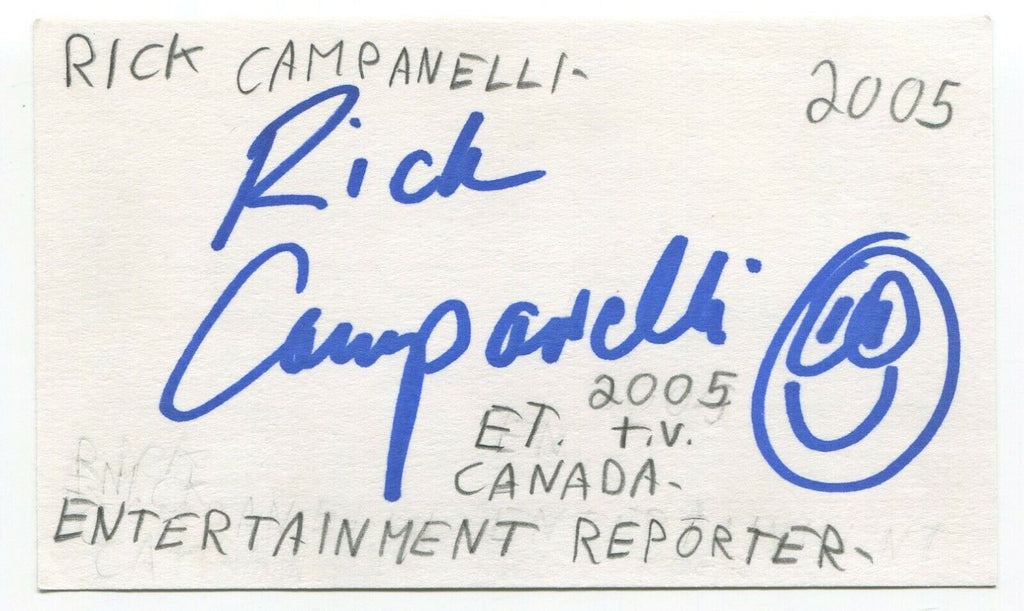 RICK CAMPANELLI-
2005
Rick
Campanelli
2005
ET. t.v.
CANADA-
ENTERTAINMENT REPORTER-